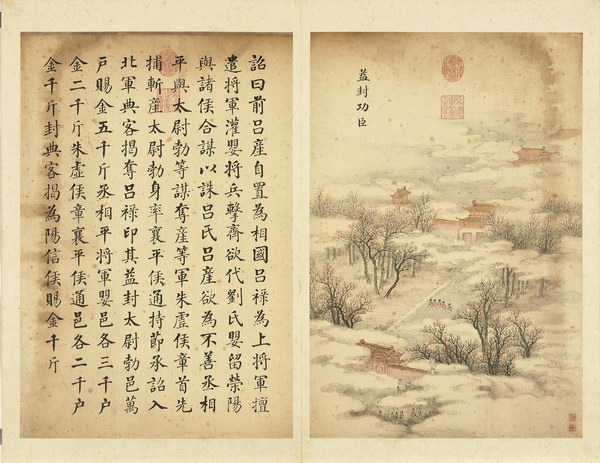 益封功臣
詔曰前吕產自置為相國吕祿為上將軍擅
遣將軍灌嬰將兵擊齊欲代劉氏嬰留榮陽
與諸侯合謀以誅吕氏吕產欲為不善丞相
平與太尉勃等謀奪產等軍朱虛侯章首先
捕斬產太尉勃身率襄平侯通持節承詔入
北軍典客揭奪吕祿印其益封太尉勃邑萬
戶賜金五千斤丞相平將軍嬰邑各三千戶
金二千斤朱虛侯章襄平侯通邑各二千戶
金千斤封典客揭為陽信侯賜金千斤